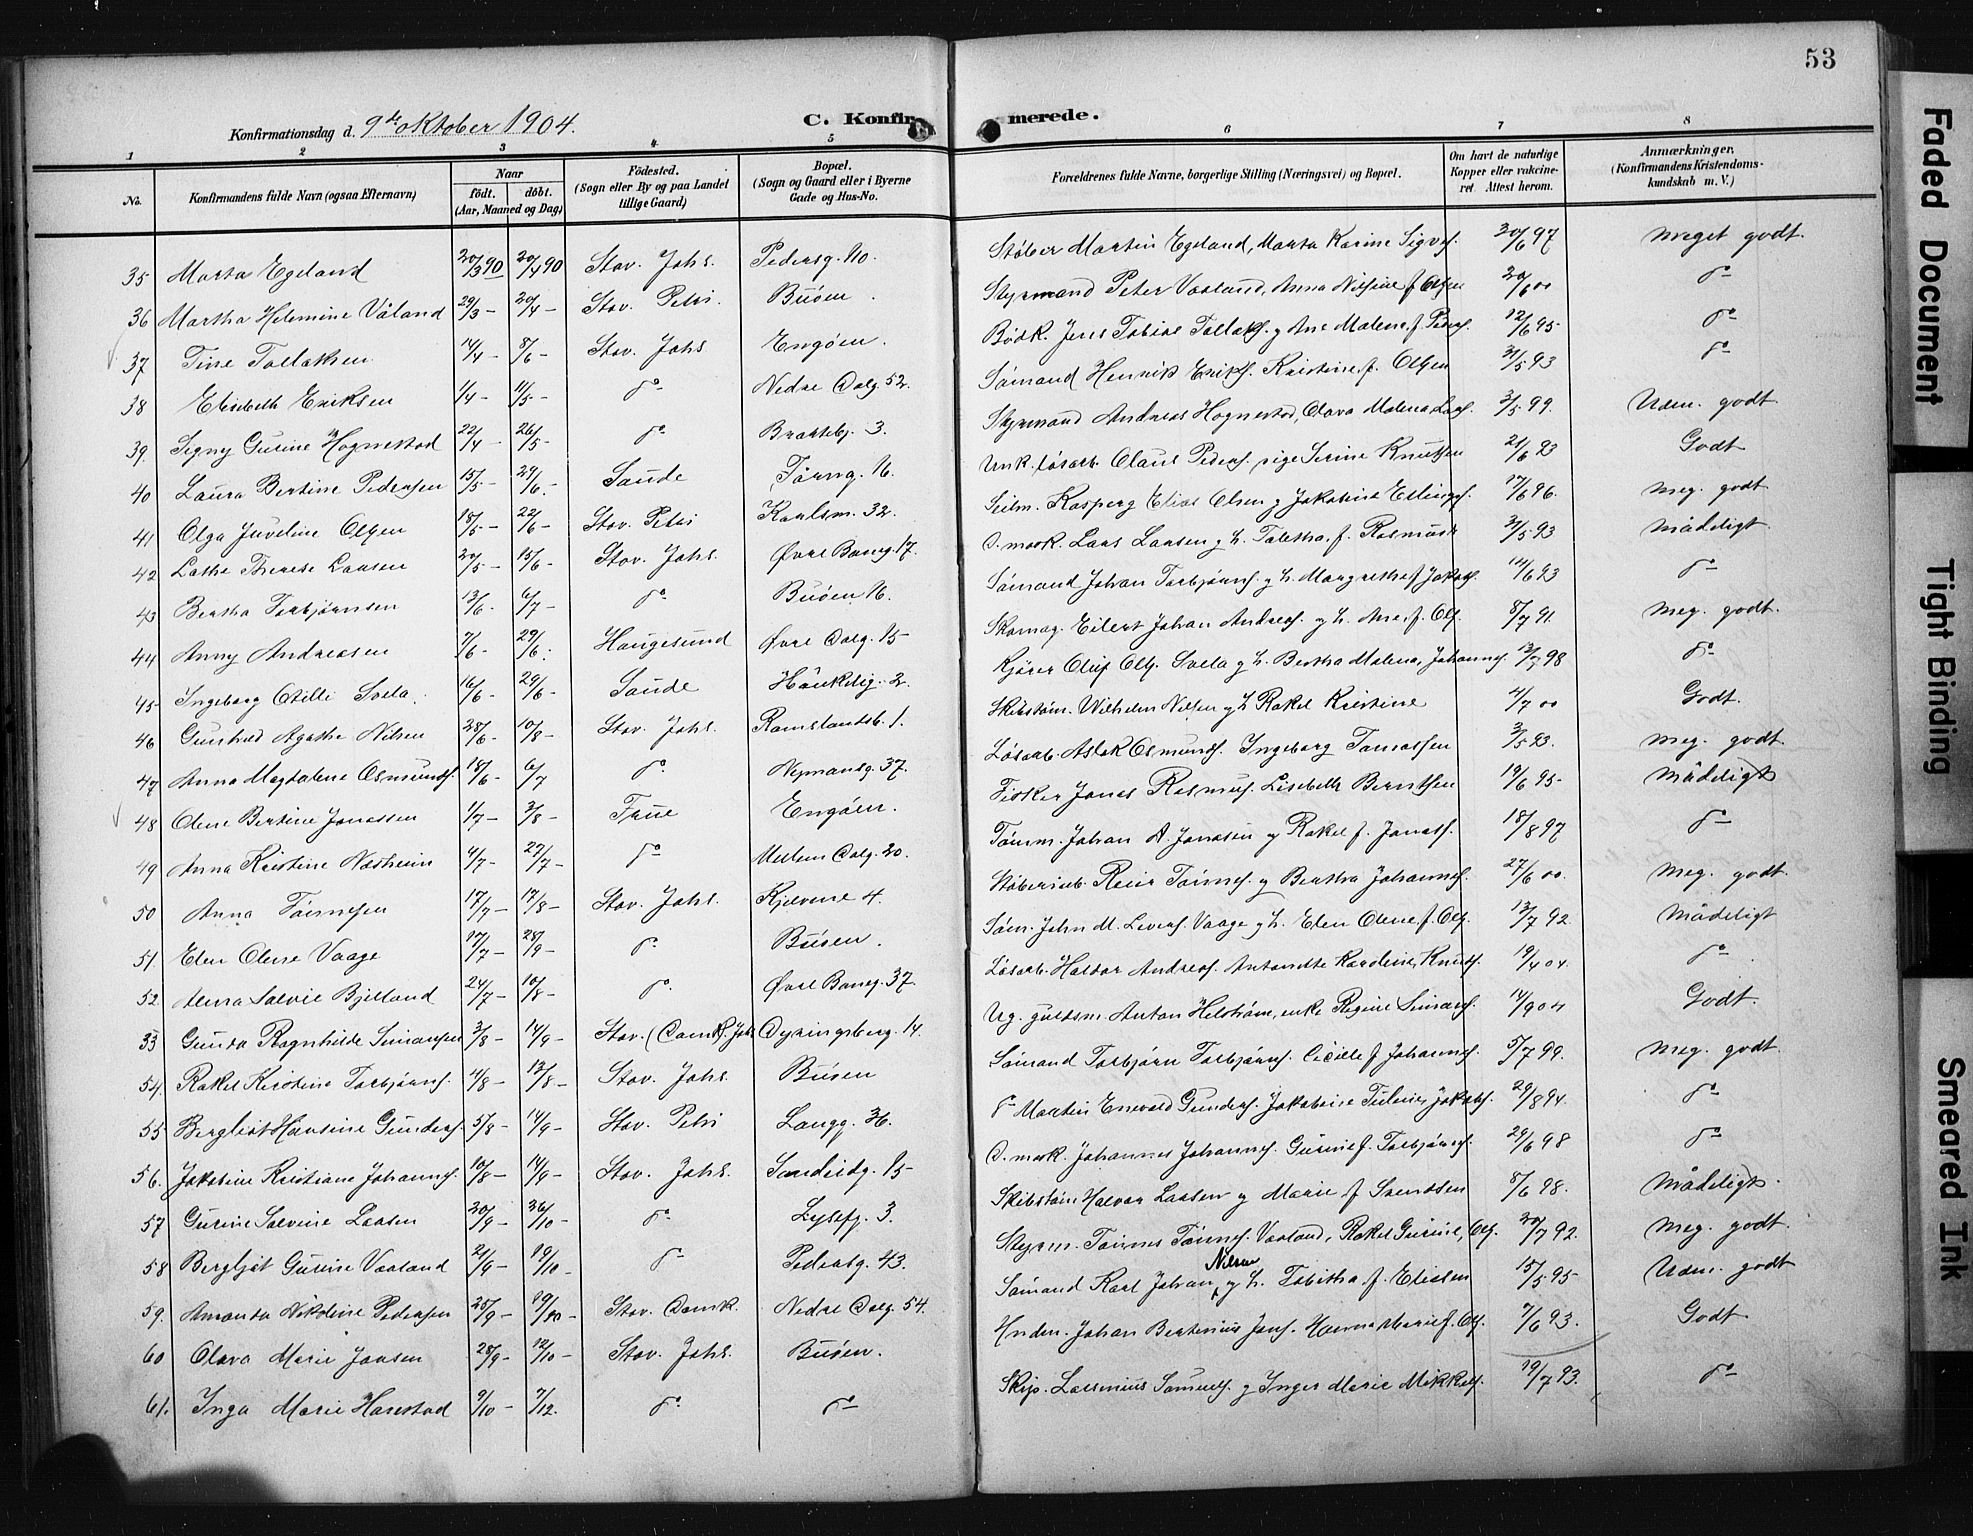 53
Konfirmationsdag d. 9de oktober 1904.
C. Konfirmerede.
1 2 3 4 5 6 7 8
No.
Konfirmandens fulde Navn (ogsaa Efternavn)
Naar
født. døbt.
(Aar, Maaned og Dag)
Födested.
(Sogn eller By og paa Landet
tillige Gaard)
Bopæl.
(Sogn og Gaard eller i Byerne
Gade og Hus-No.
Forældrenes fulde Navne, borgerlige Stilling (Næringsvei) og Bopæl.
Om havt de naturlige
Kopper eller vakcine-
ret. Attest herom.
Anmærkninger.
(Konfirmandens Kristendoms-
kundskab m. V.)
35 Marta Egeland 20/3 90 20/4 90 Stav. Johs. Pedersg. 110. Støber Martin Egeland, Marta Karine Sigvf. 30/6 97 Meget godt.
36 Martha Helemine Våland 29/3 - 20/4 - Stav. Petri Buøen. Styrmand Peter Vaaland, Anna Nilsine f. Olsen 20/6 00 do
37 Tine Tollaksen 14/4 - 8/6 - Stav. Johs Engøen. Bødk. Jens Tobias Tollaks. g Ane Malene f. Peders. 12/6 95 do
38 Elisebeth Eriksen 1/4 - 11/5 - do Nedre Dalg. 52. Sømand Henrik Eriks. Kristine f. Olsen 31/5 93 do
39. Signy Gurine Hognestad 22/4 - 26/5 - do Brattebj. 3. Styrmand Andreas Hognestad, Olava Malena Lars. 3/5 99. Udm. godt
40 Laura Bertine Pedersen 15/5 - 29/6. Saude Tårng. 16. Unk. løsarb. Claus Peders. pige Serine Knutsen 21/6 93 Godt
41 Olga Juveline Olsen 18/5 - 22/6 - Stav. Petri Karlsm. 32. Seilm. Kasperg Elias Olsen g Jakobine Erlings. 17/6 96. Meg. godt
42 Lathe Therese Larsen 20/5 - 15/6 - Stav. Johs. Øvre Baneg. 17. D. mask. Lars Larsen g h. Taletha f. Rasmuss 31/5 93 Mådeligt
43 Bertha Torbjørnsen 13/6. 6/7 - do Buøen 16. Sømand Johan Torbjørns. g h. Margrethe f. Jakobs. 14/6 93 do
44 Anny Andreasen 7/6 - 29/6. Haugesund Øvre Dalg. 15 Skomag. Eilert Johan Andreas. g h. Ane f. Ols. 8/7 91. Meg. godt.
45 Ingeborg Otilli Svela. 16/6 - 29/6 - Saude Håukelig. 2. Kjører Oluf Ols. Svela g h. Bertha Malena, Johanns. 12/7 98 do
46 Gunhild Agathe Nilsen 28/6 - 10/8 - Stav. Johs. Ramslandsb. 1. Skibstøm. Wilhelm Nilsen g h Rakel Kristine 4/7 00 Godt.
47 Anna Magdalene Osmunds. 18/6 - 6/7 do. Nymansg. 37. Løsarb. Aslak Osmunds. Ingeborg Tomassen 3/5 93. Meg. godt
48 Olene Bertine Jonassen 1/7 - 3/8 - Taue Engøen. Fisker Jonas Rasmus. Lisebeth Berntsen 19/6 95 - Mådeligt
49 Anna Kristine Næsheim 4/7 - 27/7 - do Mellem Dalg. 20. Tømm. Johan A Jonasen g Rakel f. Jonass. 18/8 97 do
50 Anna Tønnesen 17/7 - 17/8 - Stav. Johs. Kjelvene 4. Støberiarb. Reier Tønnes. g Bertha Johanns. 27/6 00. Meg. godt.
51. Elen Olene Vaage 17/7 - 28/9 - do Buøen. Søm. John M. Levers. Vaage g h. Elen Olene f. Ols. 13/7 92. Mådeligt
52. Alma Salvie Bjelland 24/7 - 10/8 - do. Øvre Baneg. 37. Løsarb. Haldor Andreas. Antonette Karoline, Knuds. 19/4 04. do
53 Gunda Ragnhilde Simonsen 3/8 - 14/9 - Stav. (Domk. Joh. Dyringsberg. 14. Ug. guldsm. Anton Helstrøm, enke Regine Simons. 14/9 04 Godt.
54. Rakel Kirstine Torbjørns. 4/8 - 17/8 - Stav. Johs. Buøen Sømand Torbjørn Torbjørns. Cecilie f Johanns. 5/7 99. Meg. godt
55 Bergliot Hansine Gunders. 5/8 - 14/9 - Stav. Petri Langg. 36. do Martin Enevald Gunders. Jakobine Tuline, Jakobs. 29/8 94. do
56. Jakobine Kristiane Johanns. 10/8 - 14/9 - Stav. Johs. Sandeidg. 15 - D. mask. Johannes Johanns. Gurine f. Torbjørns. 29/6 98 do
57 Gurine Salvine Larsen 20/9 - 26/10 - do Lysefj. 3. Skibstøm Halvor Larsen g Marie f Svendsen 8/6 98. Mådeligt.
58 Bergljot Gurine Vaaland 21/9 - 19/10 - do Pedersg. 43. Styrm. Tønnes Tønnes. Vaaland, Rakel Gurine, Ols. 20/7 92. Meg. godt.
59. Amanda Nikoline Pedersen 25/9 - 19/10 - Stav. Domk. Nedre Dalg. 54. Sømand Karl Johan Nilsen g h. Tobitha f. Eliasen 15/5 95 - Udm. godt
60 Olava Marie Jansen 28/9 - 12/10 - Stav. Johs. Buøen. Hndm. Johan Bertinius Jans. Hanna Marie f. Ols. 7/6 93. Godt
61. Inga Marie Harestad 9/10 - 7/12. do do Skip. Lassmius Samuels. g Inger Marie Mikkels. 19/7 93. do
Faded Document
Tight Binding
Smeared Ink